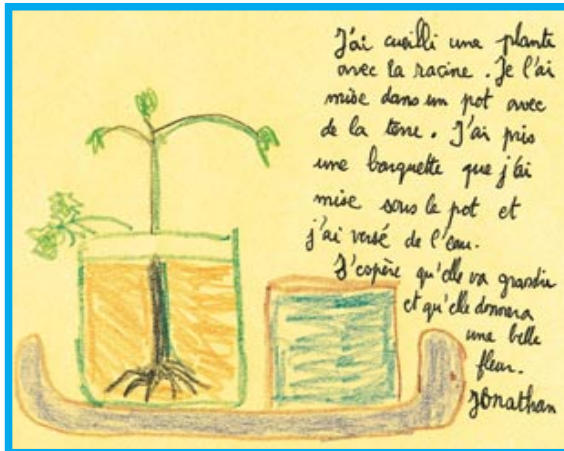 J'ai cueilli une plante
avec la racine. Je l'ai
mise dans un pot avec
de la terre. J'ai pris
une barquette que j'ai
mise sous le pot et
j'ai versé de l'eau.
J'espère qu'elle va grandir
et qu'elle donnera
une belle
fleur.
Jonathan